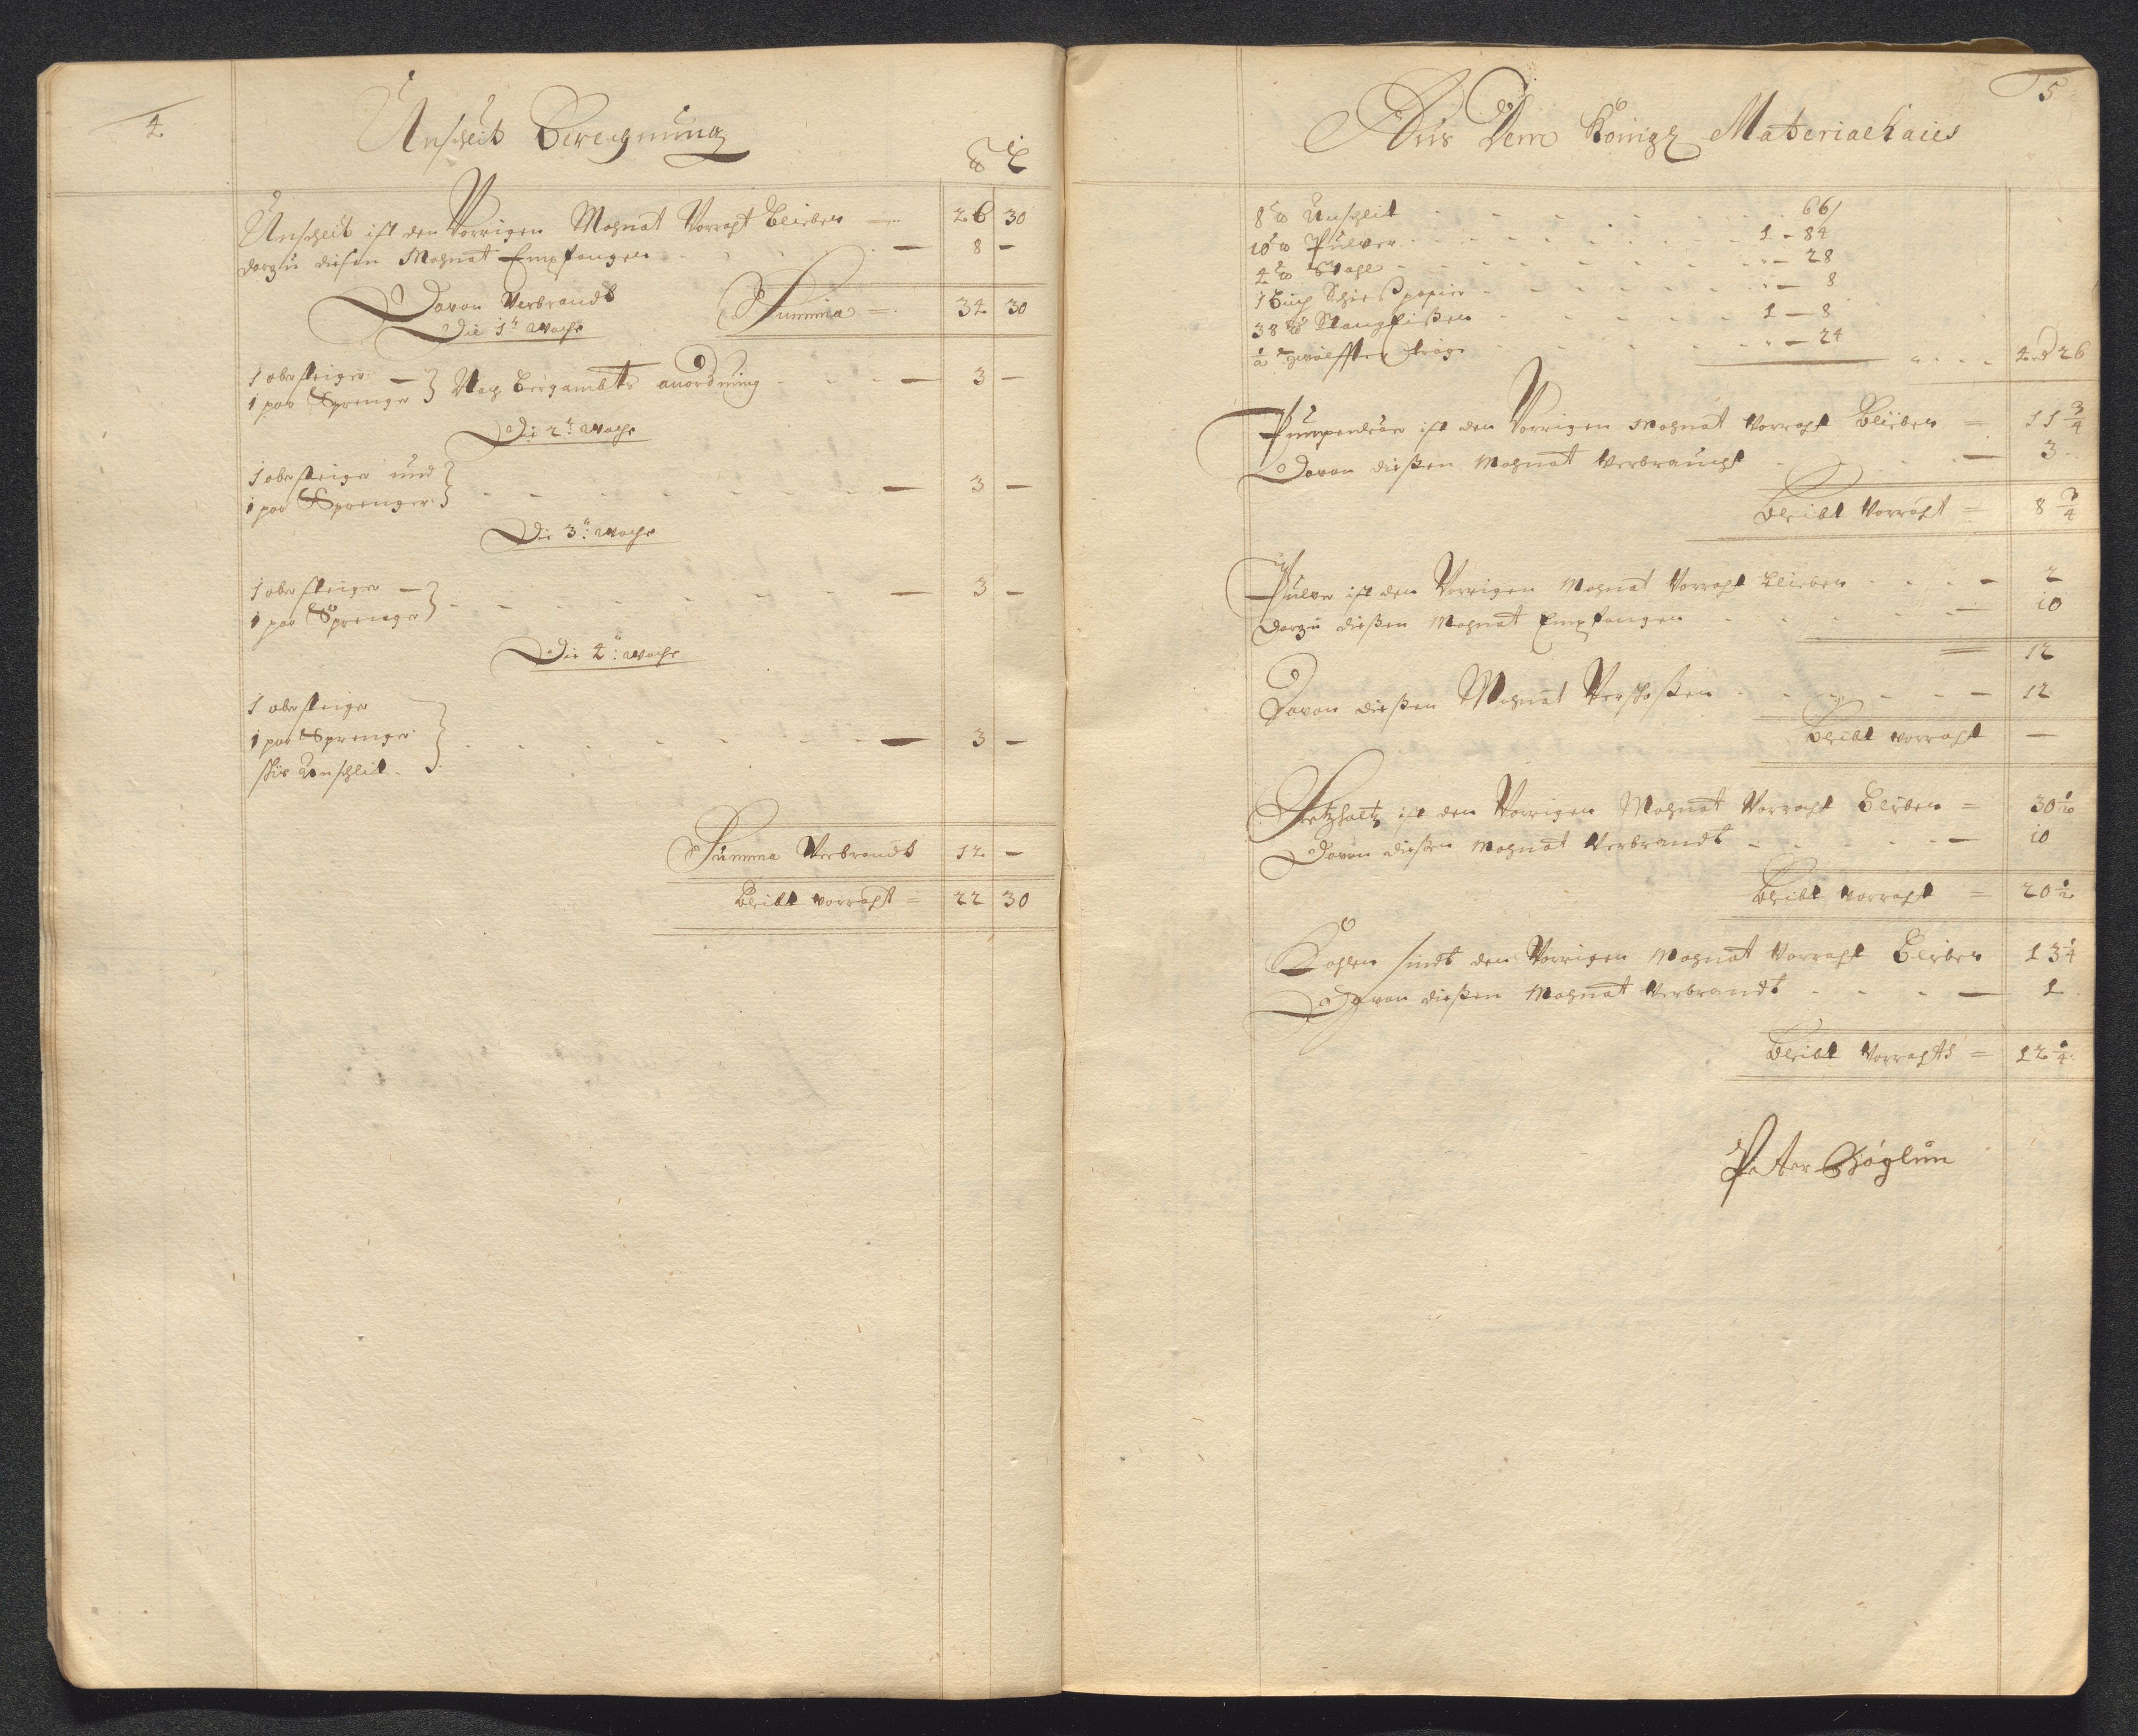 4
Unschlit Berechnung
℔ L
Unschlit ist den Vorrigen Mohnat Vorraht Blieben — 26 30
darzu diesen Mohnat Empfangen — 8 —
Davon Verbrandt Summa = 34 30
Die 1te Woche
1 obersteiger —
1 par Sprenger } Nach Bergambts anordnung — 3 —
Die 2te Woche
1 obersteiger und
1 par Sprenger } — 3 —
Die 3te Woche
1 obersteiger —
1 par Sprenger } — 3 —
Die 4te Woche
1 obersteiger
1 par Sprenger } — 3 —
für Unschlit
Summa Verbrandt 12 —
Bleibt vorraht = 22 30
5
Aus Dem Königl Materialhaus
8 ℔ Unschlit 66
10 ℔ Pulver 1 - 84
4 ℔ Stahl " - 28
1 Buch Schießpapier " — 8
38 ℔ 1 — 8
½ zwölffter trög " — 24
4 26
Pumpenleder ist den Vorrigen Mohnat Vorraht Blieben = 11 3/4
Davon dießen Mohnat Verbraucht — 3
Bleibt Vorraht = 8 3/4
Pulver ist den Vorrigen Mohnat Vorraht Blieben — 2
darzu dießen Mohnat Empfangen — 10
= 12
Davon dießen Mohnat Verschoßen — 12
Bleibt vorraht —
Setzholtz ist den Vorrigen Mohnat Vorraht Blieben = 30 1/2
Davon dießen Mohnat Verbrandt — 10
Bleibt vorraht = 20 1/2
Kohlen sindt den Vorrigen Mohnat Vorraht Blieben 13 1/4
Davon dießen Mohnat Verbrandt — 1
Bleibt Vorrahts = 12 1/4
Peter